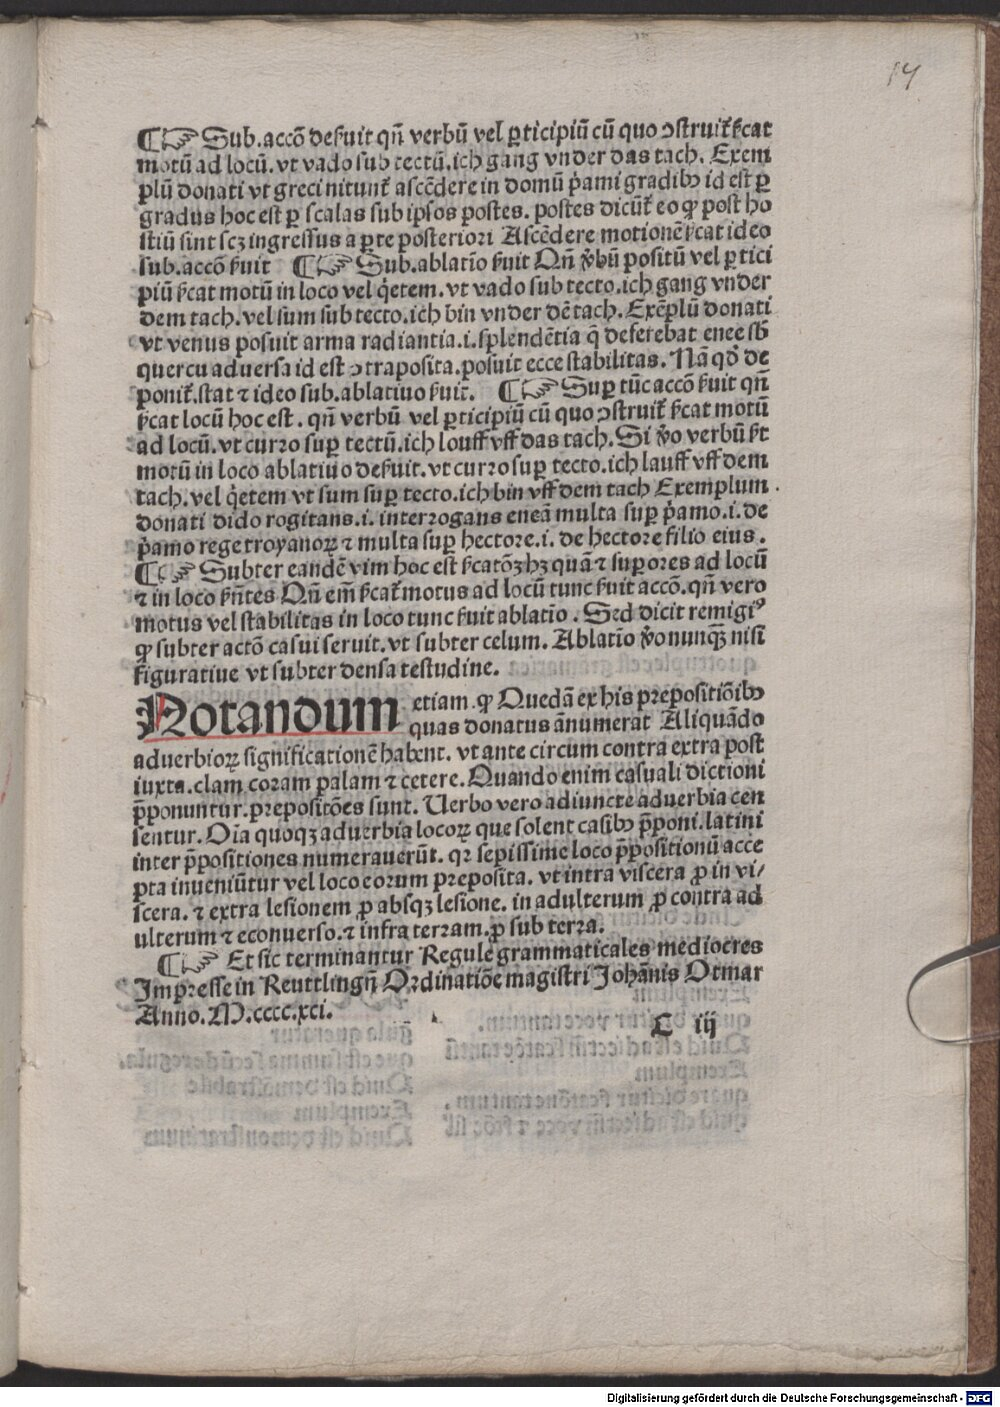 14
¶☞ Sub.accõ deẜuit qñ verbũ vel ꝑticipiũ cũ quo ꝯstruit᷑ ẜcat
motũ ad locũ. vt vado sub tectũ.ich gang vnder das tach. Exem
plũ donati vt greci nitunt᷑ ascẽdere in domũ p̓ami gradibꝫ id est ꝑ
gradus hoc est ꝑ scalas sub ipsos postes. postes dicũt᷑ eo ꝙ post ho
stiũ sint scꝫ ingressus a ꝑte posteriori Ascẽdere motionẽ ẜcat ideo
sub.accõ ẜuit ¶☞ Sub.ablatĩo ẜuit Qñ v̓bũ positũ vel ꝑtici
piũ ẜcat motũ in loco vel q̓etem. vt vado sub tecto.ich gang vnder
dem tach.vel sum sub tecto.ich bin vnder dẽ tach. Exẽplũ donati
vt venus posuit arma radiantia.i.splendẽtia q̃ deferebat enee sb̃
quercu aduersa id est ꝯtraposita.posuit ecce stabilitas. Nã qd̃ de
ponit᷑.stat ⁊ ideo sub.ablatiuo ẜuit. ¶☞ Suꝑ tũc accõ ẜuit qñ
ẜcat locũ hoc est. qñ verbũ vel ꝑticipiũ cũ quo ꝯstruit᷑ ẜcat motũ
ad locũ. vt curro suꝑ tectũ.ich louff vff das tach. Si v̓o verbũ ẜt
motũ in loco ablatiuo deẜuit. vt curro suꝑ tecto.ich lauff vff dem
tach. vel q̓etem vt sum suꝑ tecto.ich bin vff dem tach Exemplum
donati dido rogitans.i. interrogans eneã multa suꝑ p̓amo.i. de
p̓amo rege troyanoꝝ ⁊ multa suꝑ hectore.i. de hectore filio eius.
¶☞ Subter eandẽ vim hoc est ẜcatõꝫ hꝫ quã ⁊ supores ad locũ
⁊ in loco ẜñtes Qñ em̃ ẜcat᷑ motus ad locũ tunc ẜuit accõ.qñ vero
motus vel stabilitas in loco tunc ẜuit ablatĩo. Sed dicit remigiꝰ
ꝙ subter actõ casui seruit. vt subter celum. Ablatĩo v̓o nunqꝫ nisi
figuratiue vt subter densa testudine.
Notandum etiam ꝙ Quedã ex his prepositiõibꝫ
quas donatus ãnumerat Aliquãdo
aduerbioꝝ significationẽ habent. vt ante circum contra extra post
iuxta.clam coram palam ⁊ cetere. Quando enim casuali dictioni
p̃ponuntur.prepositões sunt. Uerbo vero adiuncte aduerbia cen
sentur. Oĩa quoqꝫ aduerbia locoꝝ que solent casibꝫ p̃poni.latini
inter p̃positiones numerauerũt. qꝛ sepissime loco p̃positionũ acce
pta inueniũtur vel loco eorum preposita. vt intra viscera ꝓ in vi/
scera. ⁊ extra lesionem ꝓ absqꝫ lesione. in adulterum ꝓ contra ad
ulterum ⁊ econuerso.⁊ infra terram.ꝓ sub terra.
¶☞ Et sic terminantur Regule grammaticales mediocres
Impresse in Reuttlingñ Ordinatiõe magistri Johãnis Otmar
Anno.M.cccc.xci.
C iij
Digitalisierung gefördert durch die Deutsche Forschungsgemeinschaft - DFG